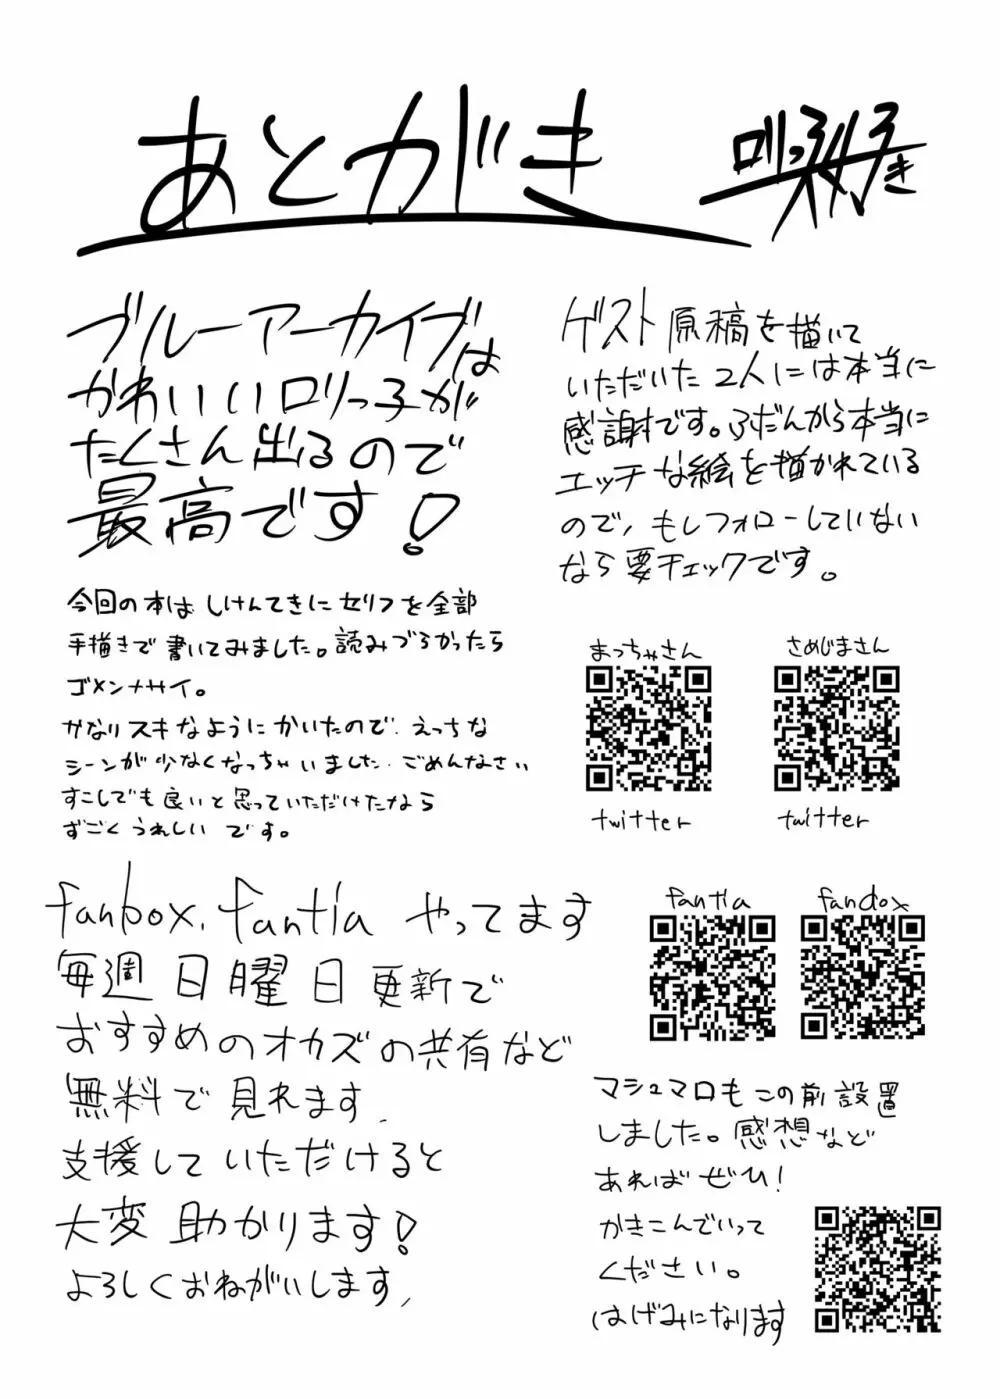 あとがき
ブルーアーカイブは
かわいいロリっ子が
たくさん出るので
最高です!
今回の本はしけんてきにセリフを全部
手描きで書いてみました。読みづらかったら
ゴメンナサイ。
かなりスキなようにかいたので、えっちな
シーンが少なくなっちゃいました、ごめんなさい
すこしでも良いと思っていただけたなら
すごくうれしいです。
ゲスト原稿を描いて
いただいた2人には本当に
感謝です。ふだんから本当に
エッチな絵を描かれている
ので、もしフォローしていない
なら要チェックです。
まっちゃさん
twitter
さめじまさん
twitter
fanbox、fantia やってます
毎週日曜日更新で
おすすめのオカズの共有など
無料で見れます、
支援していただけると
大変助かります!
よろしくおねがいします、
fantia
fanbox
マシュマロもこの前設置
しました。感想など
あればぜひ!
かきこんでいって
ください。
はげみになります